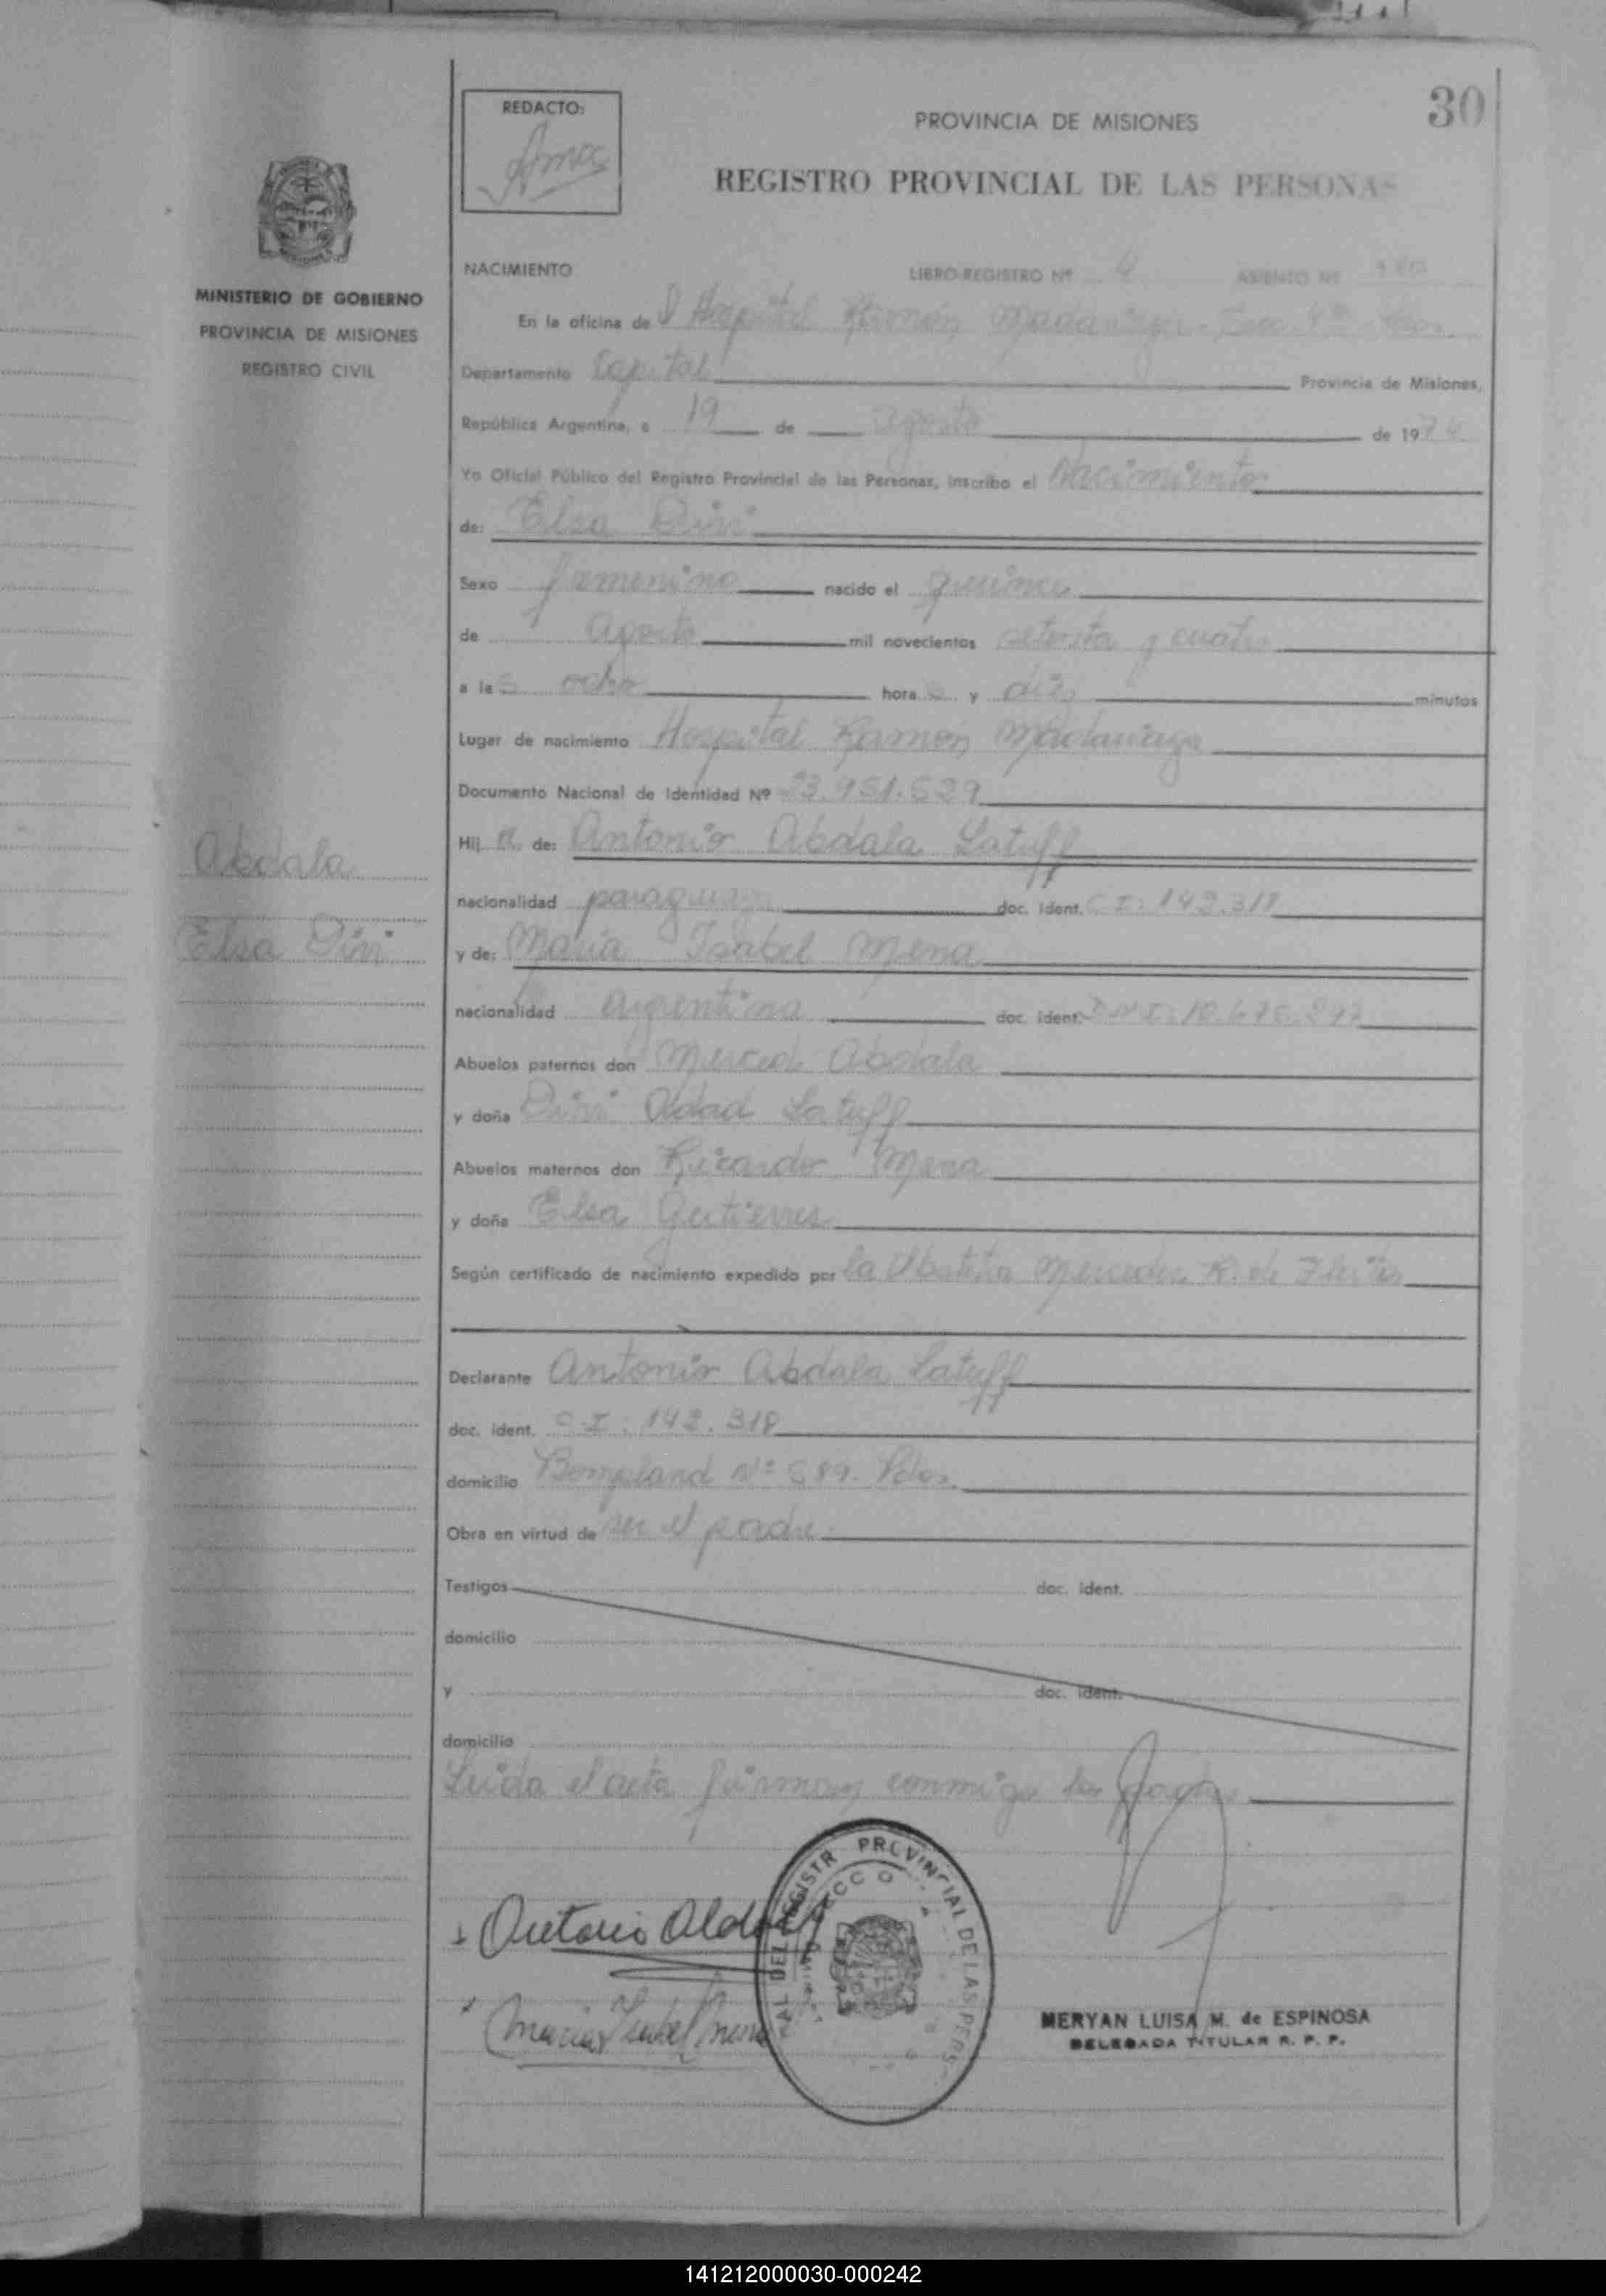 30
REDACTO:
PROVINCIA DE MISIONES
REGISTRO PROVINCIAL DE LAS PERSONAS
MINISTERIO DE GOBIERNO
PROVINCIA DE MISIONES
REGISTRO CIVIL
NACIMIENTO LIBRO-REGISTRO Nº 4 ASIENTO Nº
En la oficina de l Hospital Ramón Madariaga - Sec 4ta - Pdas.
Departamento Capital Provincia de Misiones,
República Argentina, a 19 de agosto de 1974
Yo Oficial Público del Registro Provincial de las Personas, inscribo el Nacimiento
de: Elsa Divi
Sexo femenino nacido el quince
de agosto mil novecientos setenta y cuatro
a las ocho horas y diez minutos
Lugar de nacimiento Hospital Ramón Madariaga
Documento Nacional de Identidad Nº 23.951.529
Abdala
Hija de: Antonio Abdala Latuff
nacionalidad paraguaya doc. ident. C I: 142.318
Elsa Divi
y de: Maria Isabel Mena
nacionalidad argentina doc. ident. D.N.I: 10.675.297
Abuelos paternos don Merced Abdala
y doña Divi Addad Latuff
Abuelos maternos don Ricardo Mena
y doña Elsa Gutierres
Según certificado de nacimiento expedido por la Obstetra Mercedes R. de Fleitas
Declarante Antonio Abdala Latuff
doc. ident. C.I: 142.318
domicilio Bompland Nº 589. Pdas.
Obra en virtud de ser el padre
Testigos doc. ident.
domicilio
y doc. ident.
domicilio
Leída el acta firman conmigo los padres
PROVINCIAL DE LAS PERS
Maria Isabel Mena
MERYAN LUISA M. de ESPINOSA
DELEGADA TITULAR R. P. P.
141212000030-000242